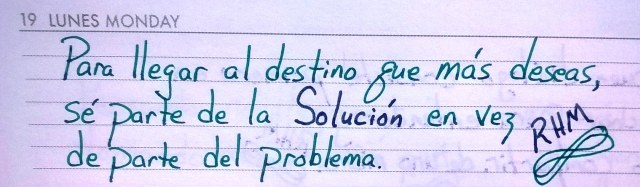 19 LUNES MONDAY
Para llegar al destino que más deseas,
sé parte de la Solución en vez
de parte del problema.
RHM